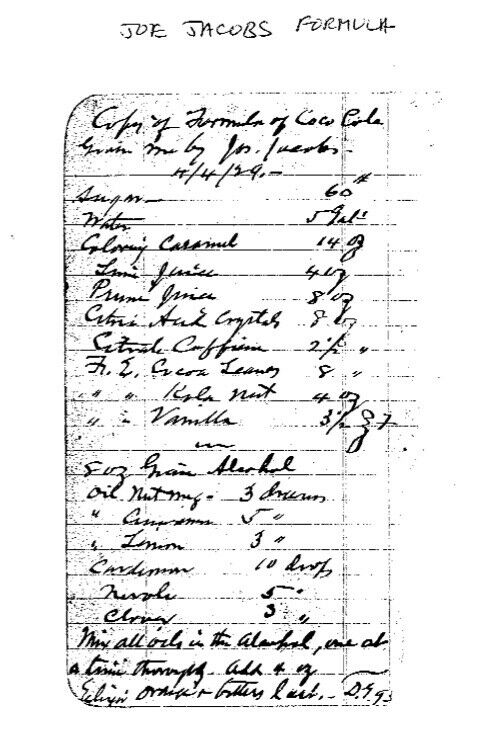 JOE JACOBS FORMULA
Copy of Formula of Coco Cola
Given me by Jos. Jacobs -
4/4/29. -
Sugar - 60 #
Water 5 Gals
Coloring Caramel 14 oz
Lime Juice 4 oz
Prune Juice 8 oz
Citric Acid Crystals 8 oz
Citrate Caffein 2 1/2 "
Fl. E. Cocoa Leaves 8 "
" " Kola Nut 4 oz
" " Vanilla 3 1/2
8 oz Grain Alcohol
Oil Nutmeg - 3 drams
" Cinnamon 5 "
" Lemon 3 "
Cardimon 10 drops
Neroli 5 "
Cloves 3 "
Mix all oils in the Alcohol, one at
a time thoroughly. Add 4 oz
Elixir Orange bitters last. -